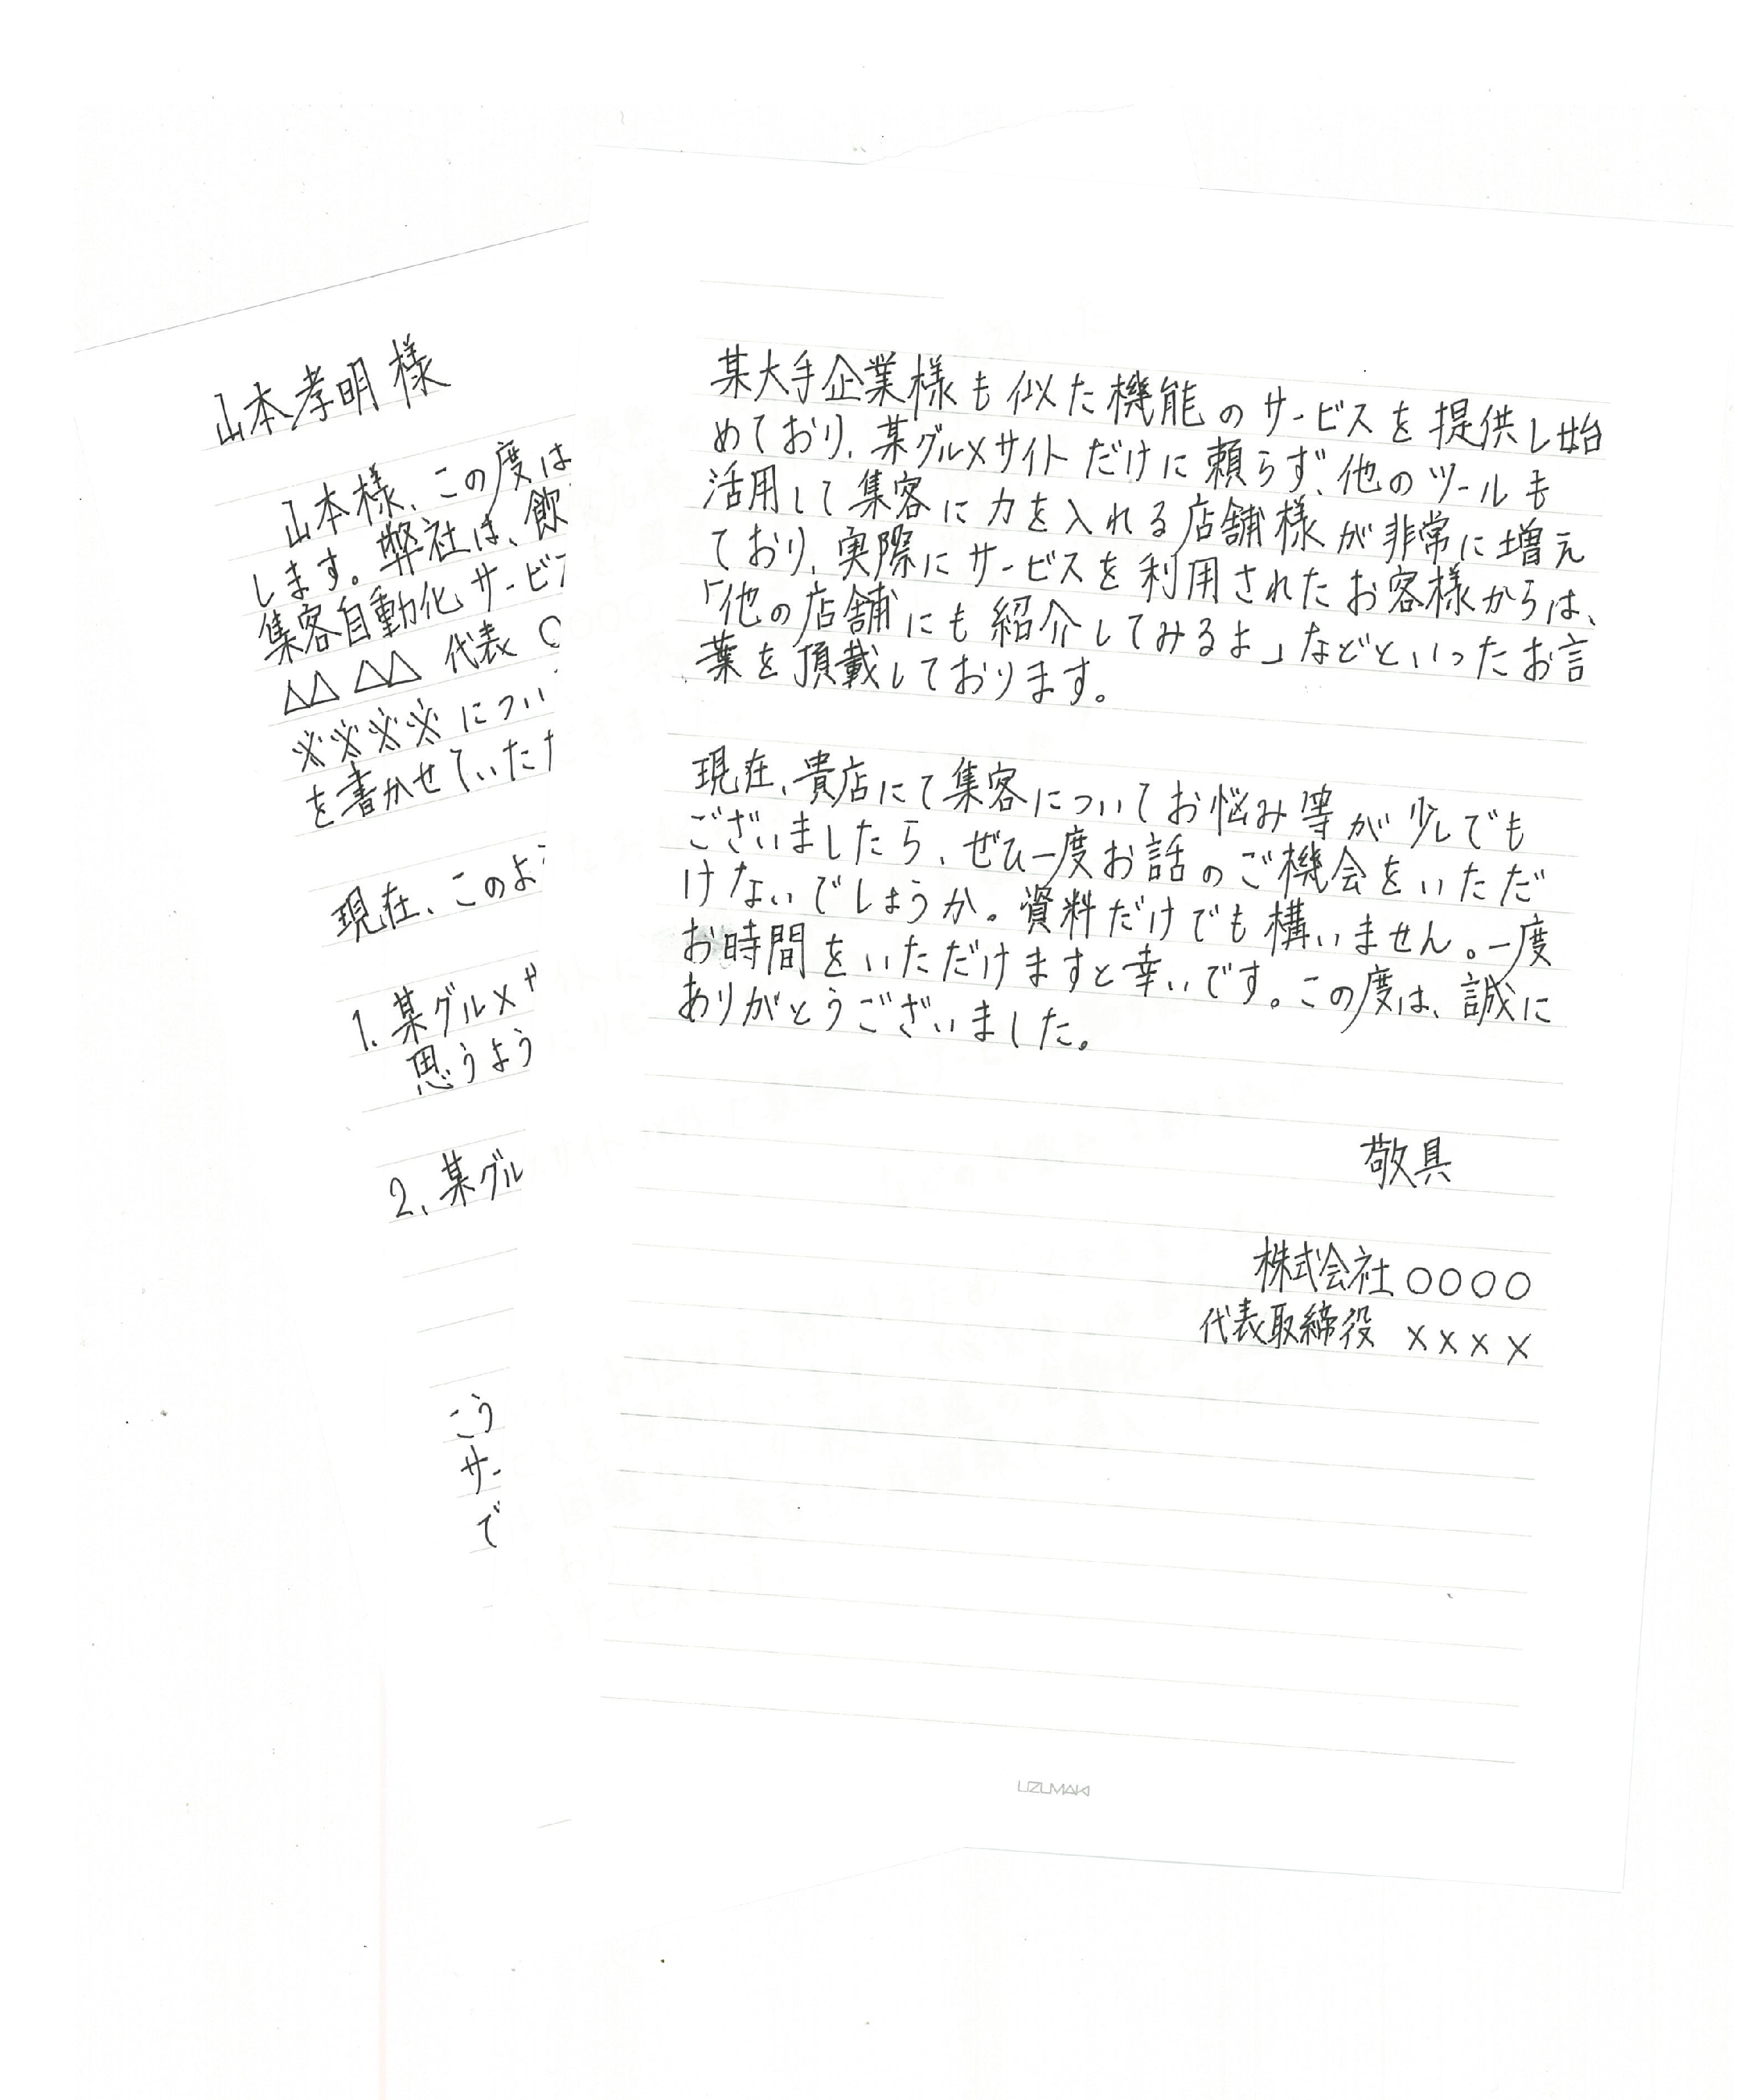 山本孝明様
山本様、この度は
します。弊社は、飲
集客自動化サービス
△△ △△ 代表 ○
※※※※につい
を書かせていただ
現在、このよう
1. 某グルメサ
思うよう
2. 某グル
こう
サー
で
某大手企業様も似た機能のサービスを提供し始
めており、某グルメサイトだけに頼らず、他のツールも
活用して集客に力を入れる店舗様が非常に増え
ており、実際にサービスを利用されたお客様からは、
「他の店舗にも紹介してみるよ」などといったお言
葉を頂載しております。
現在、貴店にて集客についてお悩み等が少しでも
ございましたら、ぜひ一度お話のご機会をいただ
けないでしょうか。資料だけでも構いません。一度
お時間をいただけますと幸いです。この度は、誠に
ありがとうございました。
敬具
株式会社○○○○
代表取締役 ××××
UZUMAKI